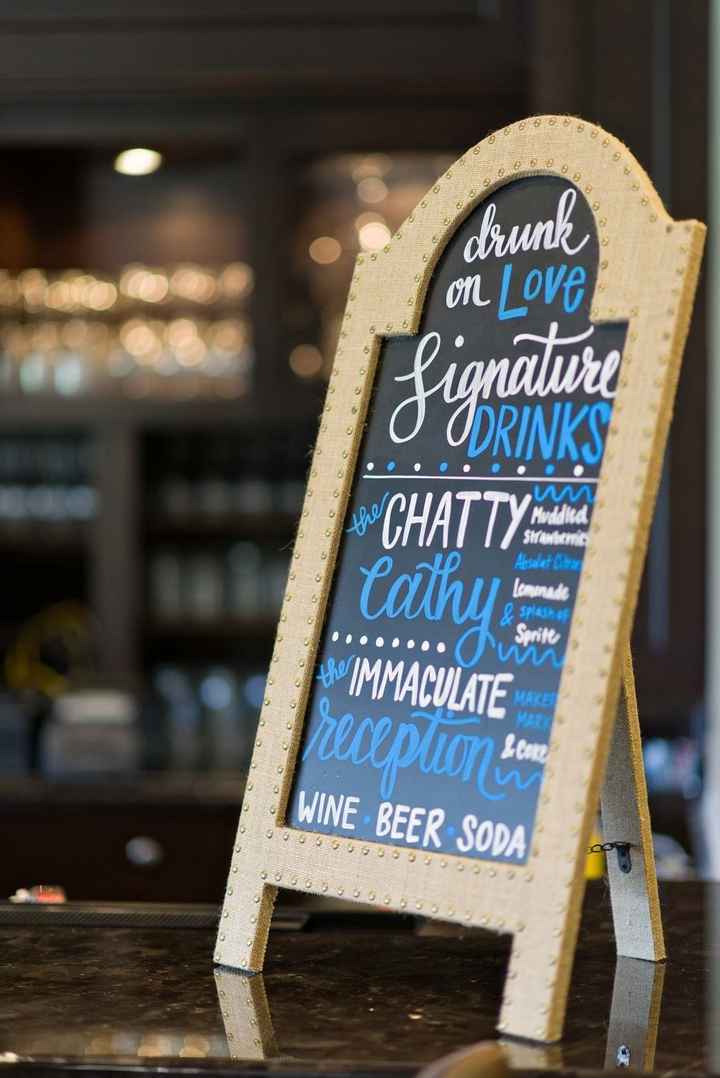 drunk
on Love
Signature
DRINKS
the CHATTY
Cathy
Muddled
strawberries
Absolut Citron
Lemonade
& splash of
Sprite
the IMMACULATE
reception
MAKERS
MARK
& COKE
WINE · BEER · SODA